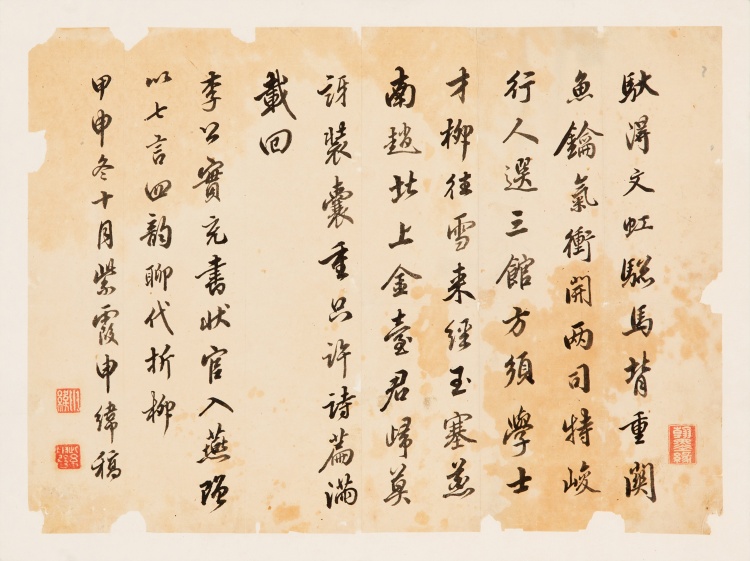 馱淂文虹騘馬背重関
魚鑰氣衝開兩司特峻
行人選三館方須學士
才柳徃雪来經玉塞燕
南趙北上金臺君歸莫
訝裝囊重只許詩篇滿
載回
李公實充書狀官入燕贈
以七言四韵聊代折柳
甲申冬十月紫霞申緯稿
翰墨緣